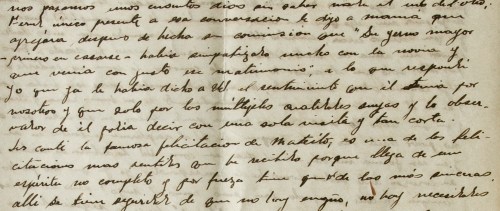 nos pasamos unos cuantos dias sin saber nada el uno del otro.
único presente a esa conversacion le dijo a mamá que
despues de hecha su comision que "Su yerno mayor
- primero en casarse - habia simpatizado mucho con la novia y
que veria con gusto ese matrimonio", a lo que respondí
yo que ya le habia dicho a Ud el sentimiento que él tenia por
nosotros y que solo por las múltiples cualidades suyas y lo obser-
vador de él podia decir con una sola visita y tan corta.
Les conté la famosa felicitacion de es una de las feli-
citaciones mas sentidas que he recibido porque llega de un
espíritu no completo y por fuerza tiene que ser de las más sinceras.
allí se tiene seguridad de que no hay engaño, no hay necesidades